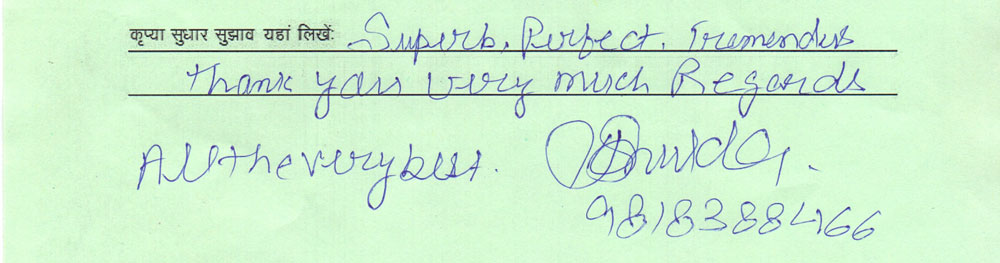 कृप्या सुधार सुझाव यहां लिखें: Superb, Perfect, Tremendus
Thank you very much Regards
All the very best.
9818388466